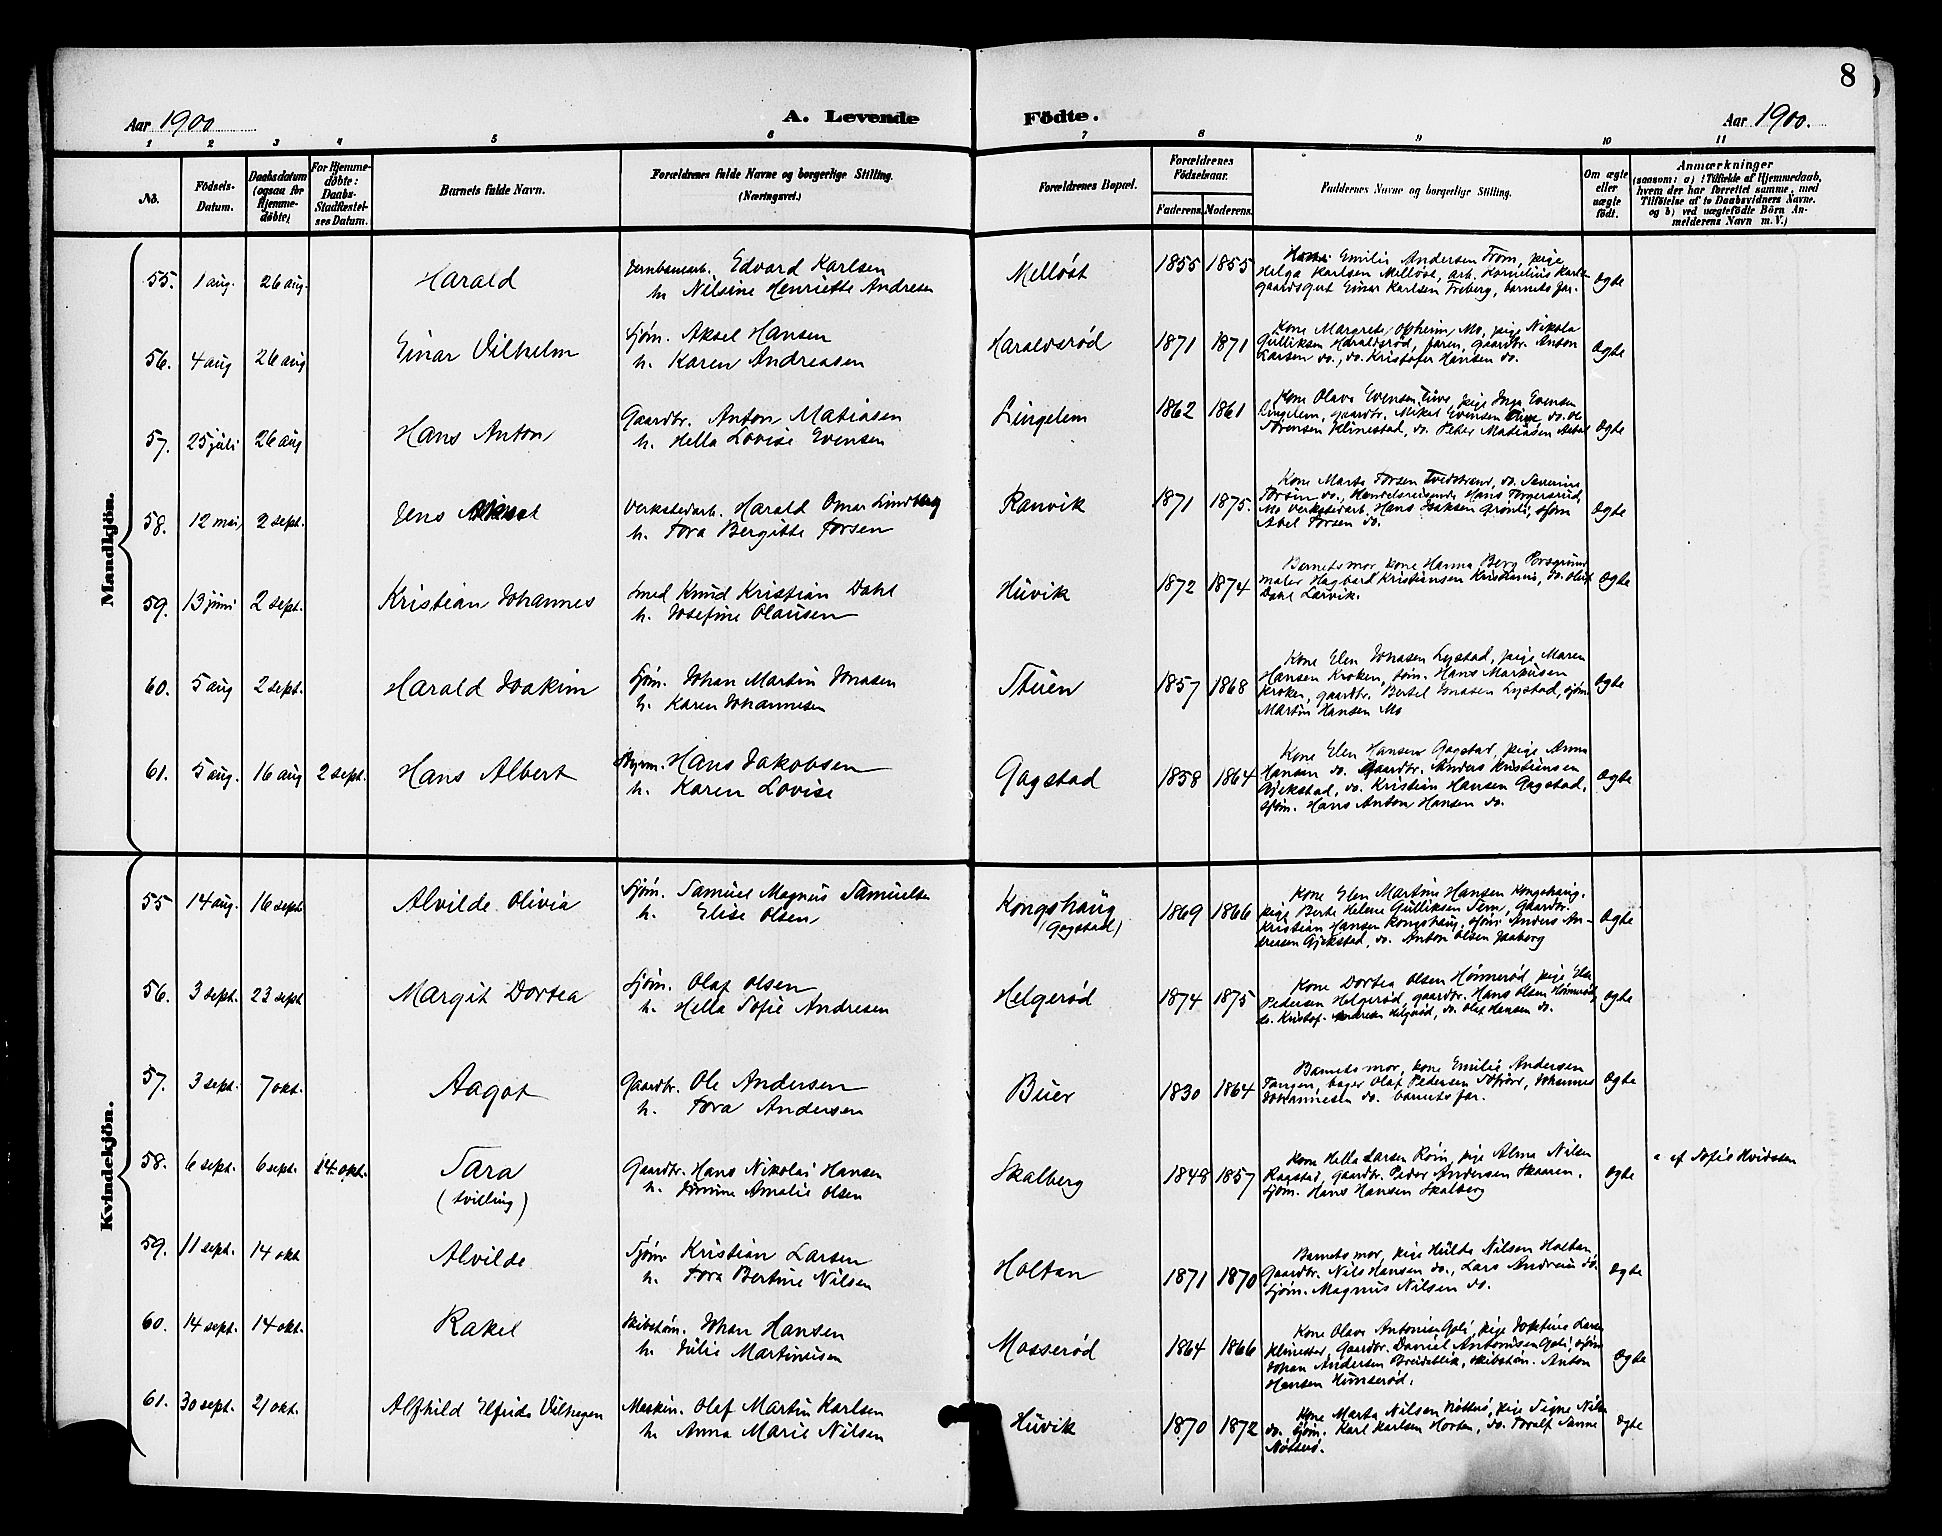 8
Aar 1900
A. Levende Födte.
Aar 1900.
1 2 3 4 5 6 7 8 9 10 11
No.
Födsels-Datum.
Daabsdatum (ogsaa for Hjemmedöbte)
For Hjemmedöbte: Daabs-Stadfæstelses Datum.
Barnets fulde Navn.
Forældrenes fulde Navne og borgerlige Stilling. (Næringsvei.)
Forældrenes Bopæl.
Forældrenes Födselsaar.
Faderens. Moderens.
Faddernes Navne og borgerlige Stilling.
Om ægte eller uægte födt.
Anmærkninger
(saasom: a) i Tilfælde af Hjemmedaab,
hvem der har forrettet samme, med
Tilföielse af to Daabsvidners Navne.
og b) ved uægtefödte Börn An-
melderens Navn m. V.)
Mandkjön.
55. 1 aug. 26 aug. Harald
Jernbanearb. Edvard Karlsen
h. Nilsine Henriette Andresen
Melløst 1855 1855
Emilie Andersen From, pige
Helga Karlsen Melløst, arb. Kornelius Karls
gaardsgut Einar Karlsen Freberg, barnets far.
Ægte
56. 4 aug 26 aug Einar Vilhelm
Sjøm. Aksel Hansen
h. Karen Andreasen
Haraldsrød 1871 1871
Kone Margrete Opheim Mo, pige Nikola
Gulliksen Haraldsrød, faren, gaardbr. Anton
Larsen do., do. Kristofer Hansen do.
Ægte
57. 25 juli 26 aug Hans Anton
Gaardbr. Anton Matiasen
h. Hella Lovise Evensen
Lingelem 1862 1861
Kone Olava Evensen pige Inga Evensen
Lingelem, gaardbr. Mikal Evensen do. Ole
Sørensen Klinestad, do. Peter Matiasen
Ægte
58. 12 mai 2 sept. Jens
Verkstedarb. Harald Omar Lindberg
h. Tora Bergitte Torsen
Ranvik 1871 1875.
Kone Marta Torsen do. Severine
Torsen do., Handelsreisende Hans Torgersrud,
Mo Verkstedarb. Hans Isaksen Grønli, sjøm
Abel Torsen do.
Ægte
59. 13 juni 2 sept. Kristian Johannes
Smed Knud Kristian Dahl
h. Josefine Olausen
Huvik 1872 1874
Barnets mor, kone Hanna Berg Porsgrund
maler Hagbard Kristiansen Kristiania, do. Oluf
Dahl Larvik.
Ægte
60. 5 aug 2 sept. Harald Joakim
Sjøm. Johan Martin Jonasen
h. Karen Johannesen
Stuen 1857 1868
Kone Elen Jonasen Lystad, pige Maren
Hansen Kroken, sjøm. Hans Markusen
Kroken, gaardbr. Bertel Jonasen Lystad, sjøm.
Martin Hansen Mo
Ægte
61. 5 aug. 16 aug 2 sept. Hans Albert
Styrm. Hans Jakobsen
h. Karen Lovise
Gogstad 1858 1864
Kone Elen Hansen Gogstad, pige Anna
Hansen do. Gaardbr. Anders Kristiansen
Gjekstad, do. Kristian Hansen Gogstad,
sjøm. Hans Anton Hansen do.
Ægte
Kvindekjön.
55 14 aug. 16 sept Alvilde Olivia
Sjøm. Samuel Magnus Samuelsen
h. Elise Olsen
Kongshaug (Gogstad) 1869 1866
Kone Elen Martine Hansen Kongshaug.
pige Berte Helene Gulliksen Fem, Gaardbr.
Kristian Hansen Kongshaug, sjøm. Anders An-
dreasen Gjekstad, do. Anton Olsen Jaaberg
Ægte
56. 3 sept. 23 sept Margit Dortea
Sjøm. Olaf Olsen
h. Hella Sofie Andresen
Helgerød 1874 1875
Kone Dortea Olsen Hønnerød, pige Elen
Pedersen Helgerød, gaardbr. Hans Olsen Hønnerød
do. Kristof. Andresen Helgerød, do. Olaf Hansen do.
Ægte
57. 3 sept. 7 okt. Aagot
Gaardbr. Ole Andersen
h. Tora Andersen
Buer 1830 1864
Barnets mor, kone Emilie Andersen
Tangen, bager Olaf Pedersen Johannes
Johannesen do. barnets far.
Ægte
58. 6 sept. 6 sept. 14. okt. Sara (tvilling)
Gaardbr. Hans Nikolai Hansen
h. Amalie Olsen
Skalberg 1848 1857
Kone Hella Larsen pige Alma Nilsen
Ragstad, Gaardbr. Peder Andersen Skaaren,
sjøm. Hans Hansen Skalberg
Ægte
af Sofie Hvidsten
59. 11 sept. 14 okt Alvilde
Sjøm Kristian Larsen
h. Tora Bertine Nilsen
Holtan 1871 1870
Barnets mor, pige Hulda Nilsen Holtan,
Gaardbr. Nils Hansen do., Lars Andersen do.
Sjøm. Magnus Nilsen do.
Ægte
60. 14 sept. 14 okt. Rakel
Skibstøm. Johan Hansen
h. Julie Martinusen
Mosserød 1864 1866
Kone Olava Antonisen Goli, pige Josefine Larsen
Gaardbr. Daniel Antonisen Goli, sjøm
Johan Andersen Breidablik, skibstøm. Anton
Hansen Hunserød.
Ægte
61. 30 sept. 21 okt. Alfhild Elfrida Vilhegen
Maskin. Olaf Martin Karlsen
h. Anna Marie Nilsen
Huvik 1870 1872
Kone Marta Nilsen Nøtterø, pige Signe Nilsen
do. Sjøm. Karl Karlsen Horten, do. Toralf Sanne
Nøtterø.
Ægte